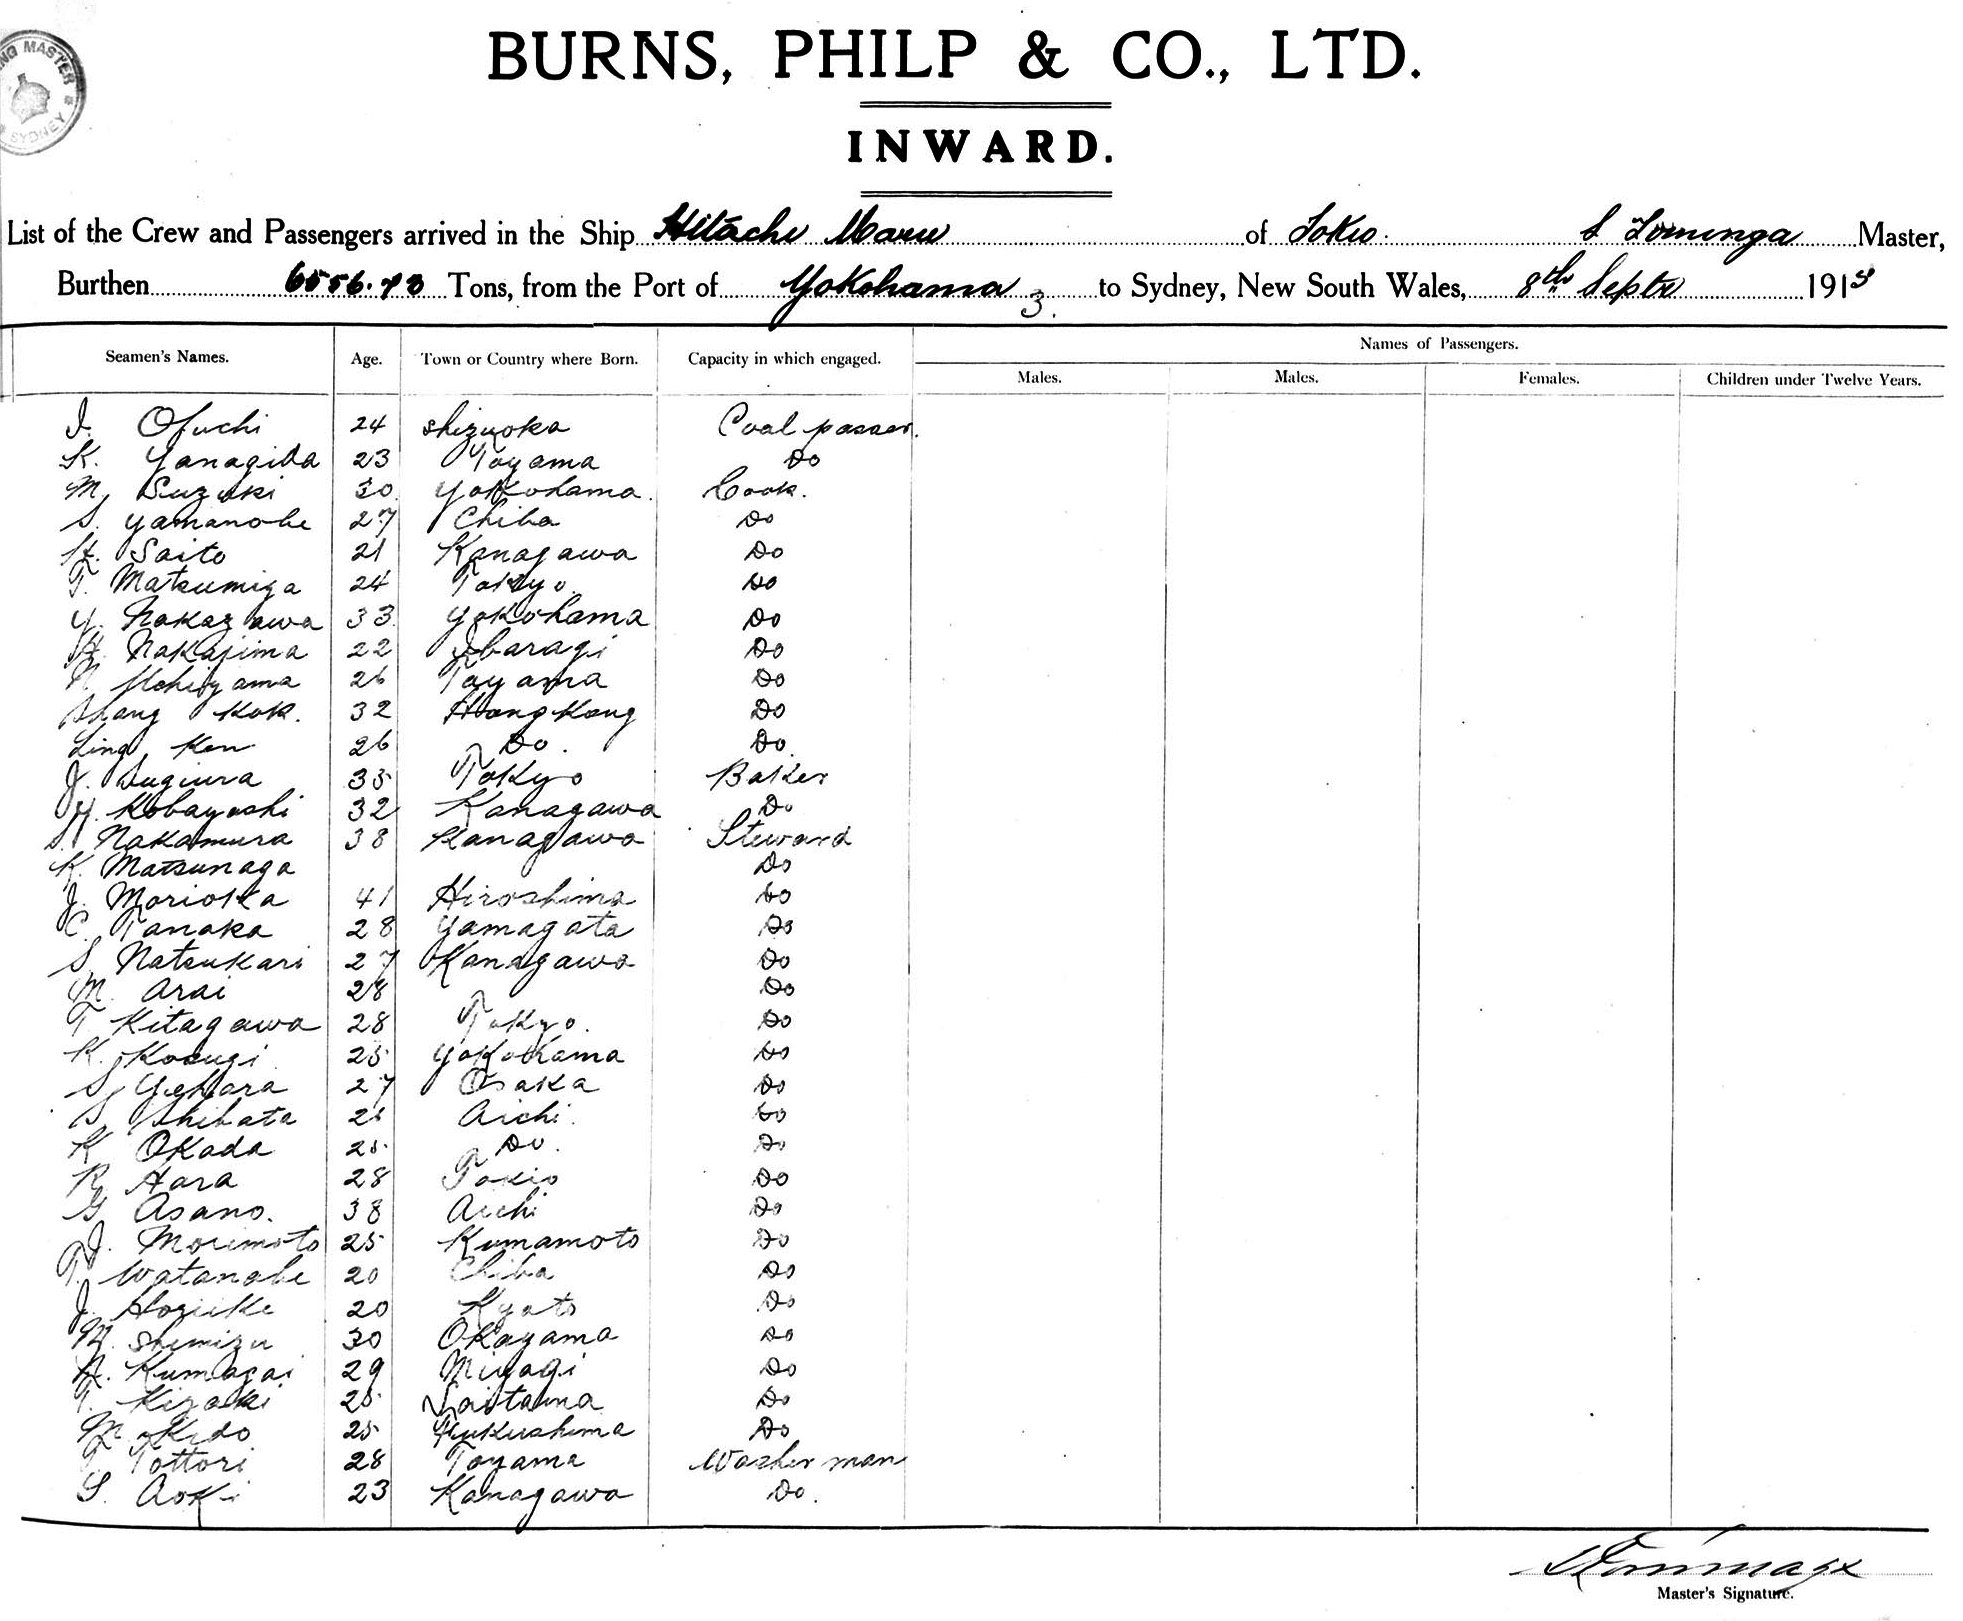 NG MASTER
SYDNEY
BURNS, PHILP & CO., LTD.
INWARD.
List of the Crew and Passengers arrived in the Ship Hitachi Maru of Tokio. S Tominga Master,
Burthen 6556.73 Tons, from the Port of Yokohama 3. to Sydney, New South Wales, 8th Septr 1915
Names of Passengers.
Seamen's Names. Age. Town or Country where Born. Capacity in which engaged. Males. Males. Females. Children under Twelve Years.
I. Ofuchi 24 Shizuoka Coal passer.
K. Yanagida 23 Toyama Do
M. Suzuki 30 Yokohama. Cook.
S. Yamanobe 27 Chiba Do
H. Saito 21 Kanagawa Do
T. Matsumiya 24 Tokyo. Do
Y. Nakazawa 33 Yokohama Do
H. Nakajima 22 Ibaragi Do
N. Uchiyama 26 Toyama Do
Shang Kok. 32 HongKong Do
Ling Ken 26 Do. Do.
J. Sugiura 35 Tokyo Baker
Y. Kobayashi 32 Kanagawa Do
S. Nakamura 38 Kanagawa Steward
K. Matsunaga Do
J. Morioka 41 Hiroshima Do
C. Tanaka 28 Yamagata Do
S. Natsukari 27 Kanagawa Do
M. Arai 28 Do
T Kitagawa 28 Tokyo. Do
K. Kosugi 25 Yokohama Do
S. Yehara 27 Osaka Do
S Shibata Aichi. Do
K Okada 25 Do. Do
R Hara 28 Tokio Do
G Asano. 38 Aichi Do
J. Morimoto 25 Kumamoto Do
T. Watanabe 20 Chiba Do
J. 20 Kyoto Do
M. Shimizu 30 Okayama Do
H. Kumagai 29 Miyagi Do
T. Kizaki 25 Saitama Do
M. Kido 25 Fukushima Do
T. Tottori 28 Toyama Washer man
S. Aoki 23 Kanagawa Do.
Master's Signature.